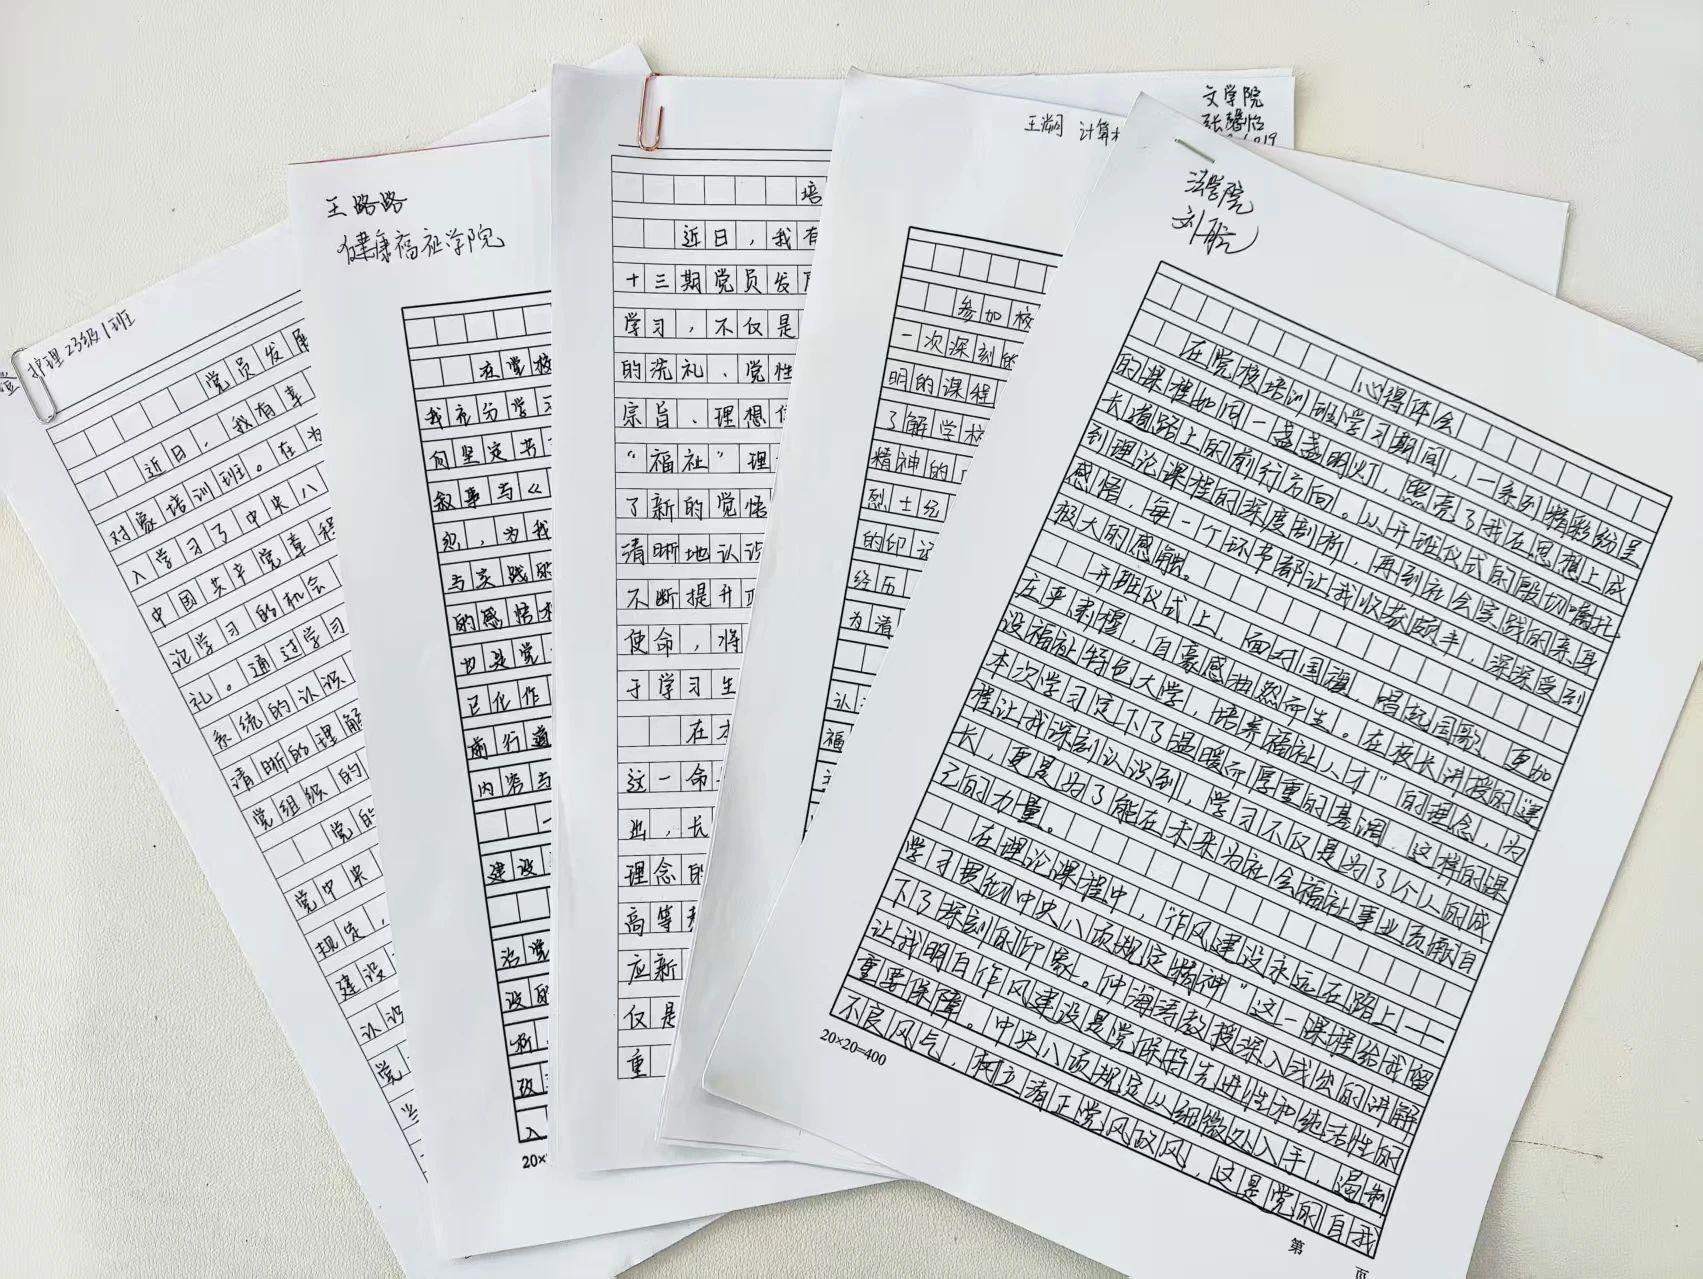 护理23级1班
党员发展
近日，我有幸
对象培训班。在为
入学习了中央八
中国共产党章程
论学习的机会
礼。通过学习
系统的认识
清晰的理解
党组织的
党的
党中央
规定，
建设
认识
党
王路路
健康福祉学院
在党校
我充分学习
向坚定书
叙事与《
织，为我
与实践的
的感悟
也是党
已化作
前行道
内容与
一
建设
治党
设的
析
改
入
培
近日，我有
十三期党员发展
学习，不仅是
的洗礼、党性
宗旨、理想信
“福祉”理
了新的觉悟
清晰地认识
不断提升
使命，将
于学习生
在本
这一命
进，长
理念的
高等教
应新
仅是
重
文学院
张馨怡
计算机
参加校
一次深刻的
明的课程
了解学校
精神的
烈士纪
的印记
经历
为清
认
福
法学院
刘聪
心得体会
在党校培训班学习期间，一系列精彩纷呈
的课程如同一盏盏明灯，照亮了我在思想上成
长道路上的前行方向。从开班仪式的殷切嘱托
到理论课程的深度剖析，再到社会实践的亲身
感悟，每一个环节都让我收获颇丰，深深受到
极大的感触。
开班仪式上，面对国旗，唱起国歌，更加
庄严肃穆，自豪感油然而生。在校长讲授的“建
设福祉特色大学，培养福祉人才”的理念，为
本次学习定下了温暖而厚重的基调。这样的课
程让我深刻认识到，学习不仅是为了个人的成
长，更是为了能在未来为社会福祉事业贡献自
己的力量。
在理论课程中，“作风建设永远在路上——
学习贯彻中央八项规定精神”这一课程给我留
下了深刻的印象。仲海涛教授深入浅出的讲解
让我明白作风建设是党保持先进性和纯洁性的
重要保障。中央八项规定从细微处入手，遏制
不良风气，树立清正党风政风，这是党的自我
20×20=400
第 页